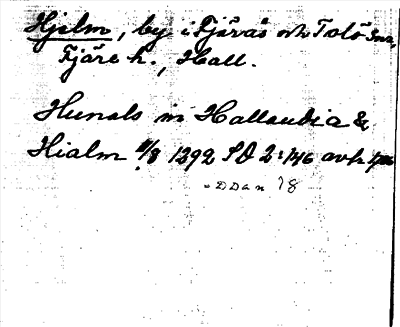 Hjelm, by i Fjärås och Tölö snr,
Fjäre h., Hall.
Hunals in Hallandia &
Hialm 11/8 1392 SD 2:146 avskr
= DDan 18